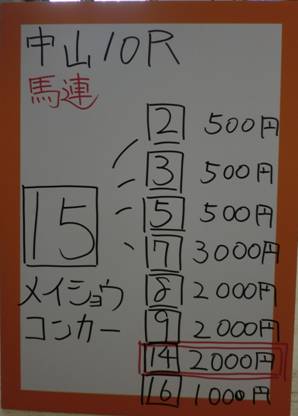 中山10R
馬連
15
メイショウ
コンカー
2 500円
3 500円
5 500円
7 3000円
8 2000円
9 2000円
14 2000円
16 1000円